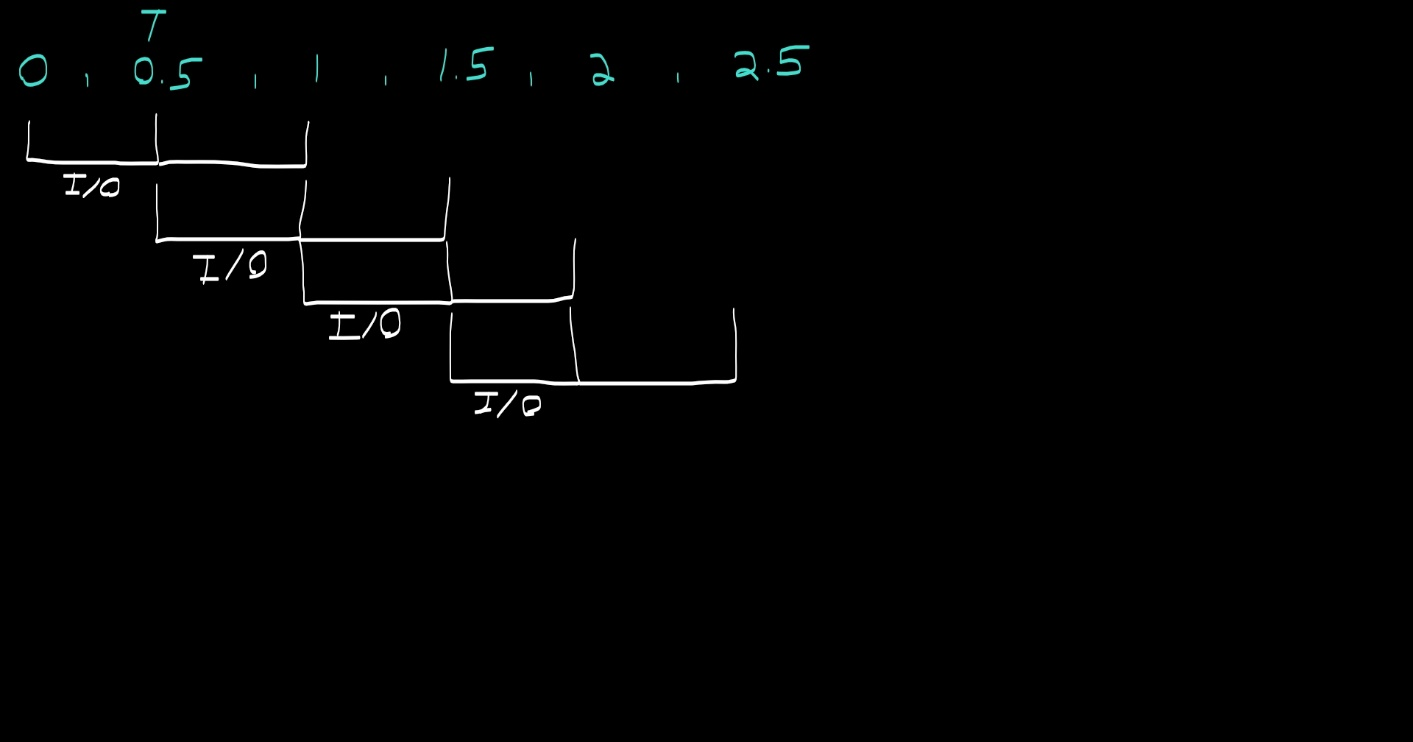 T
0 , 0.5 , 1 , 1.5 , 2 , 2.5
I/O
I/O
I/O
I/O